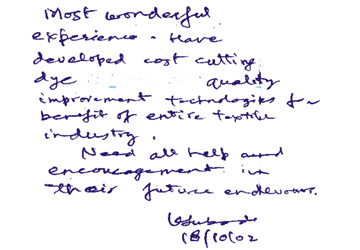 Most wonderful
experience. Have
developed cost cutting
dye quality
improvement technologies for
benefit of entire textile
industry.
Need all help and
encouragement in
their future endevours.
18/10/02